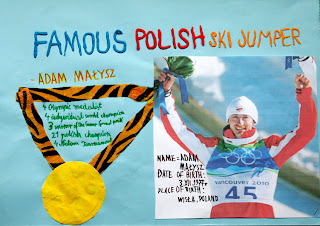 FAMOUS POLISH SKI JUMPER
- ADAM MAŁYSZ
4 Olympic medalist
4 individual world champion
3 winner of the Summer Grand prix
21 polish champion
4 Nordic Tournament
NAME: ADAM
MAŁYSZ
DATE OF BIRTH:
3.XII.1977r
PLACE OF BIRTH:
WISŁA, POLAND
vancouver 2010
45